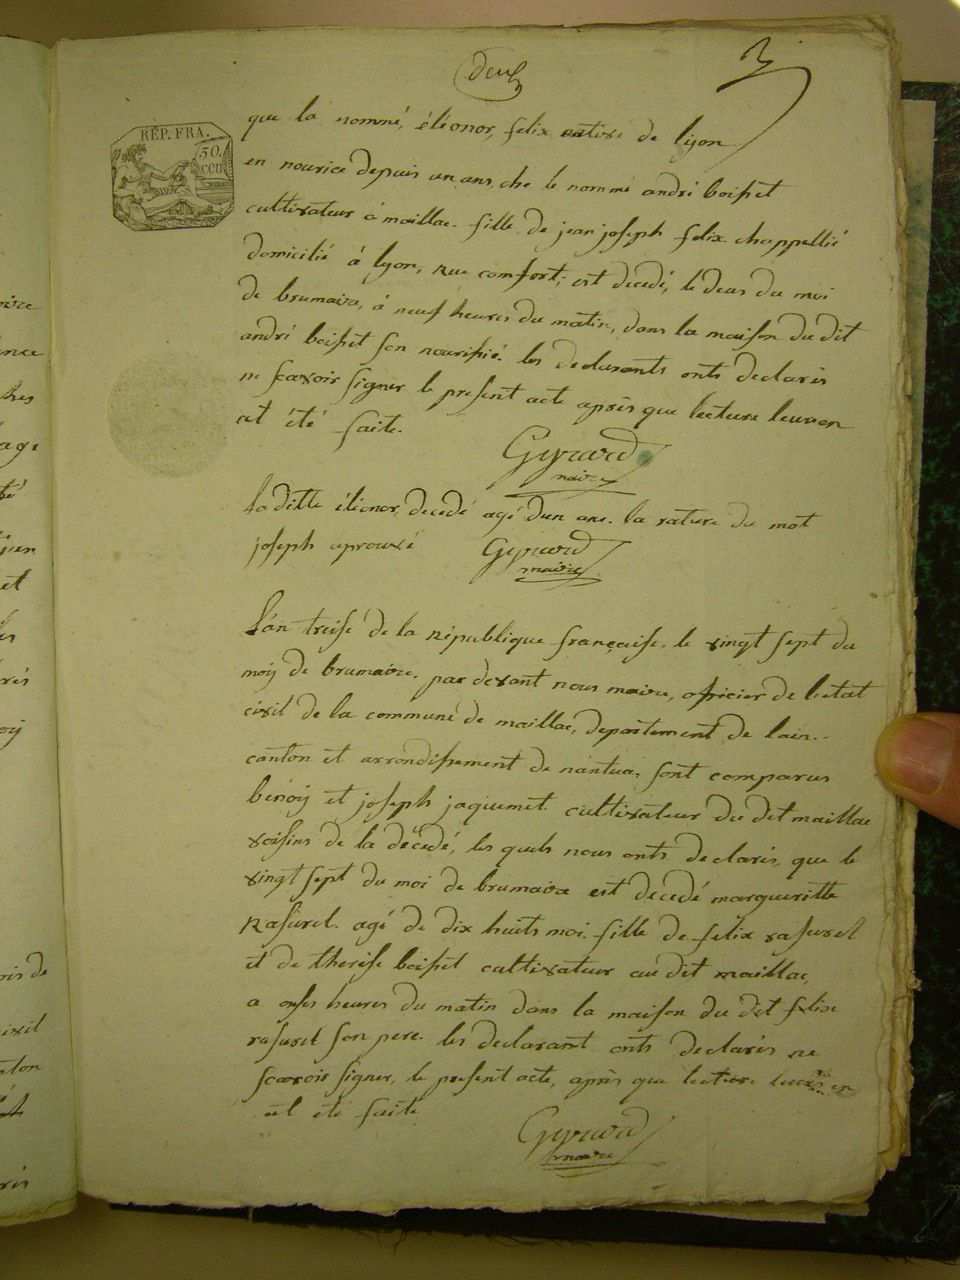 deux
REP. FRA.
50.
CEN
que la nommé, éléonor, felix native de lyon
en nourice depuis un ans, ché le nommé andré boisset
cultivateur a maillac. fille de jean joseph felix chappellié
domicilié à lyon, rue comfort; est décédé, le deus du moi
de brumaire, à neuf heures du matin, dans la maison du dit
andré boisset son nourissié. les declarants onts declarés
ne scavoir signer le present acte après que lecture leur en
at été faite.
Gyrard
maire
la ditte éléonor, decedé agé d'un ans. la rature du mot
joseph aprouvé Gyrard
maire
L'an treise de la république française. le vingt sept du
moy de brumaire. par devant nous maire, officier de l'etat
civil de la commune de maillac, departement de l'ain..
canton et arrondissement de nantua, sont comparus
benoy et joseph jaquemet cultivateur du dit maillac
voisins de la décédé, les quels nous onts declarés, que le
vingt sept du moi de brumaire est decedé margueritte
Rasurel. agé de dix huits moi. fille de felix rasurel
et de therese boisset cultivateur au dit maillac,
a onses heures du matin dans la maison du dit felix
rasurel son pere. les declarant onts declarés ne
scavoir signer, le present acte, après que lecture leurs en
at été faite
Gyrard
maire